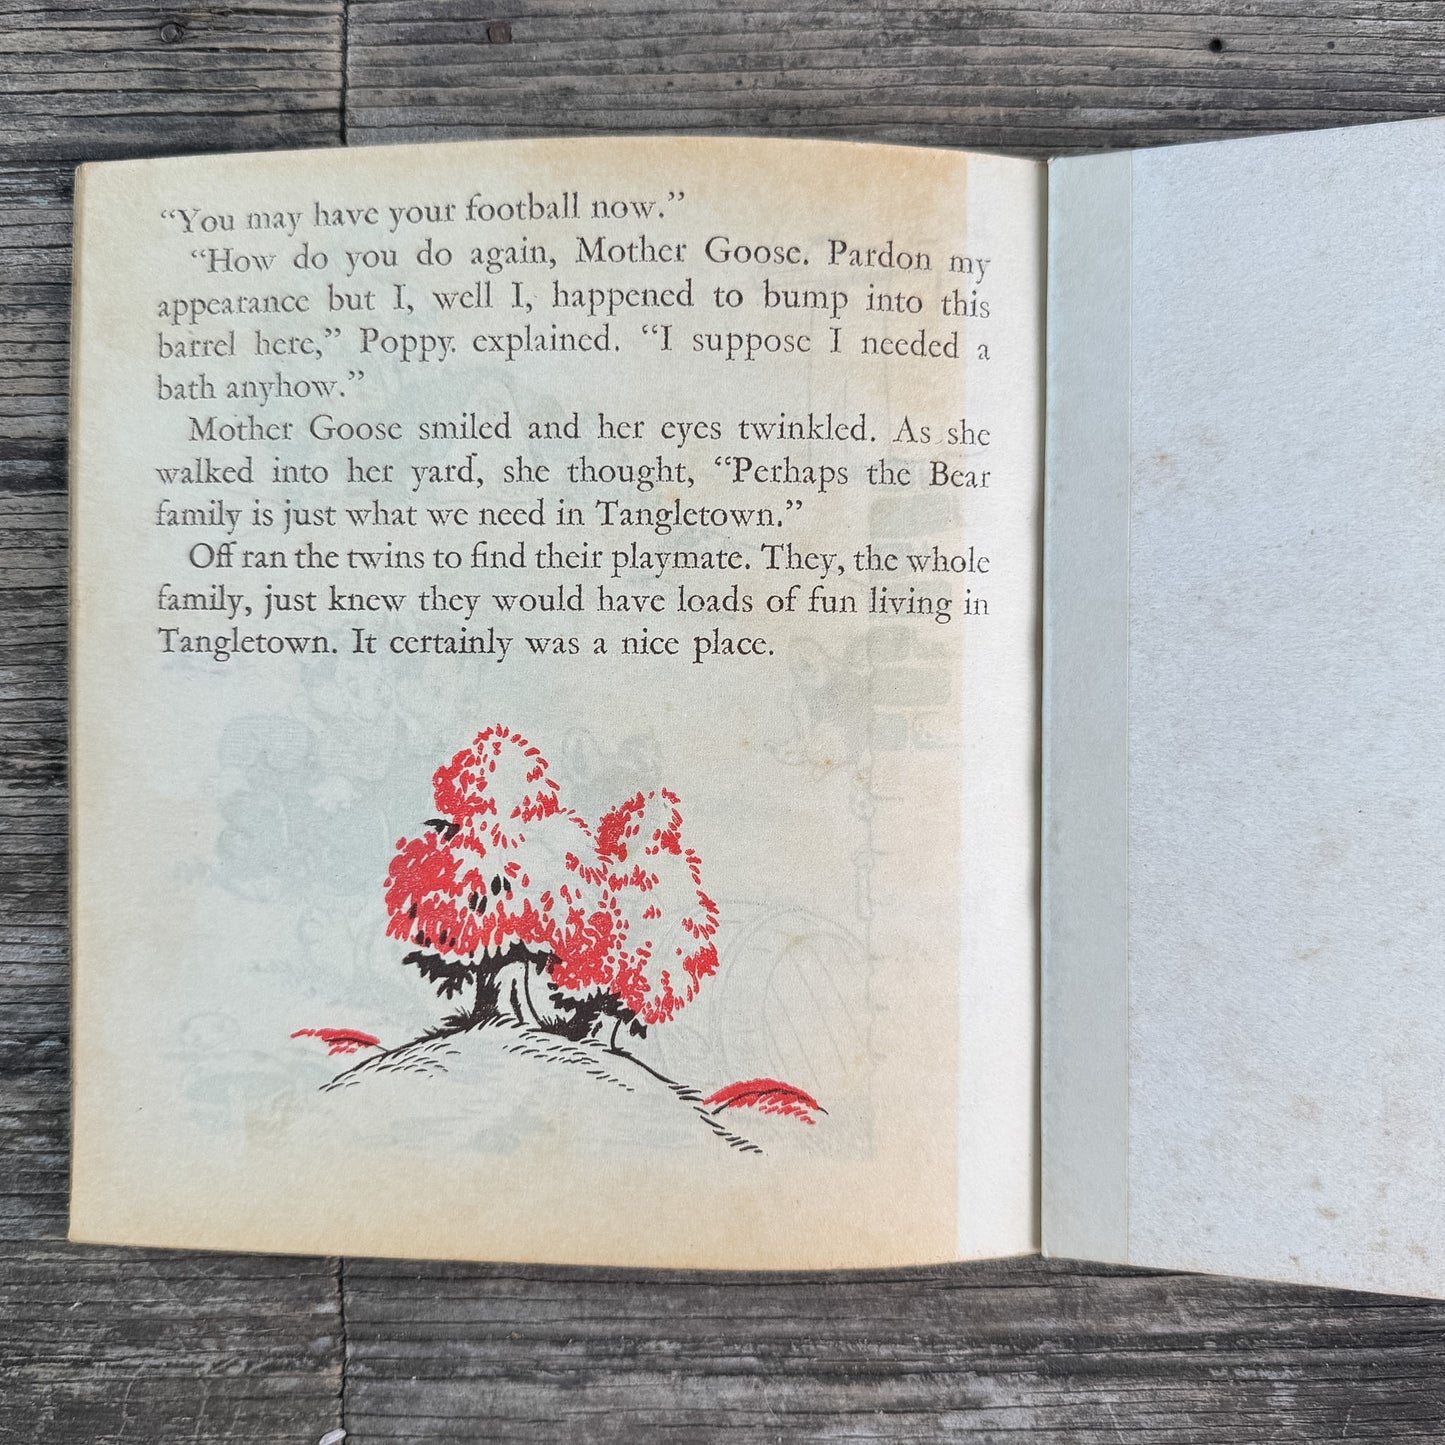 “You may have your football now.”
“How do you do again, Mother Goose. Pardon my
appearance but I, well I, happened to bump into this
barrel here,” Poppy. explained. “I suppose I needed a
bath anyhow.”
Mother Goose smiled and her eyes twinkled. As she
walked into her yard, she thought, “Perhaps the Bear
family is just what we need in Tangletown.”
Off ran the twins to find their playmate. They, the whole
family, just knew they would have loads of fun living in
Tangletown. It certainly was a nice place.